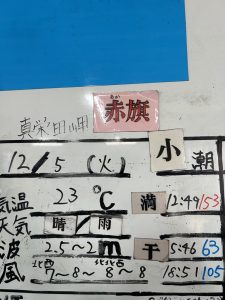 あか
赤旗
真栄田岬
12/5 (火) 小潮
気温 23℃ 満 12:49/153
天気 晴/雨
波 2.5~2m 干 5:46 63
風 北西 7~8~ 北北西 8~8 18:51 105